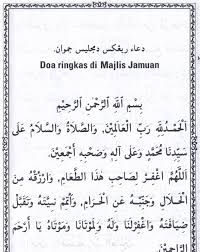 دعاء ريڠكس دمجليس جموان.
Doa ringkas di Majlis Jamuan
بِسْمِ اللهِ الرَّحْمٰنِ الرَّحِيْمِ
اَلْحَمْدُ لِلّٰهِ رَبِّ الْعَالَمِيْنَ. وَالصَّلَاةُ وَالسَّلَامُ عَلَى
سَيِّدِنَا مُحَمَّدٍ وَعَلَى آلِهِ وَصَحْبِهِ أَجْمَعِيْنَ.
اَللّٰهُمَّ اغْفِرْ لِصَاحِبِ هٰذَا الطَّعَامِ. وَارْزُقْهُ مِنَ
الْحَلَالِ وَجَنِّبْهُ عَنِ الْحَرَامِ. وَأَتْمِمْ نِيَّتَهُ وَتَقَبَّلْ
ضِيَافَتَهُ وَاغْفِرْ لَنَا وَلَهُ وَلِمَوْتَانَا وَمَوْتَاهُ يَا أَرْحَمَ
الرَّاحِمِيْنَ.